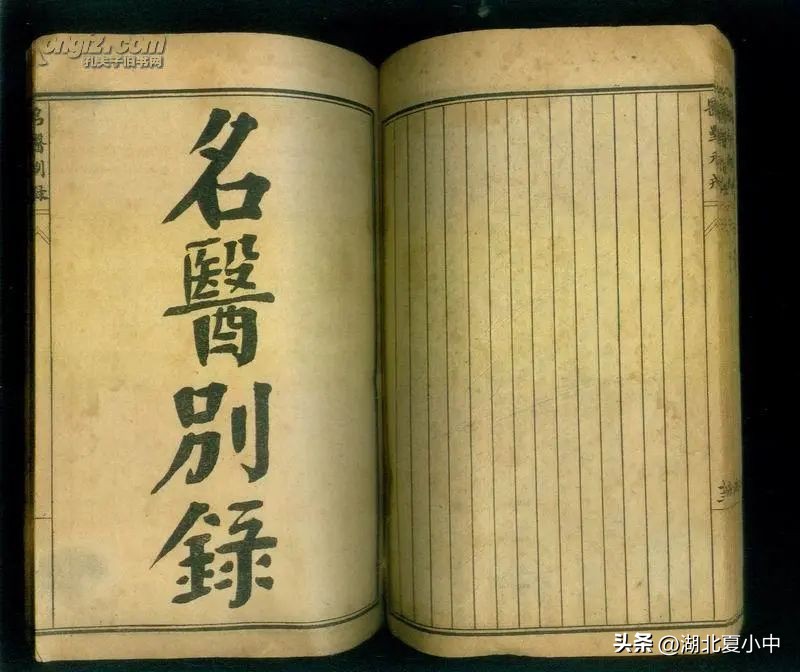 ongiz.com
孔夫子旧书网
名醫別錄
名醫別錄
头条 @湖北夏小中